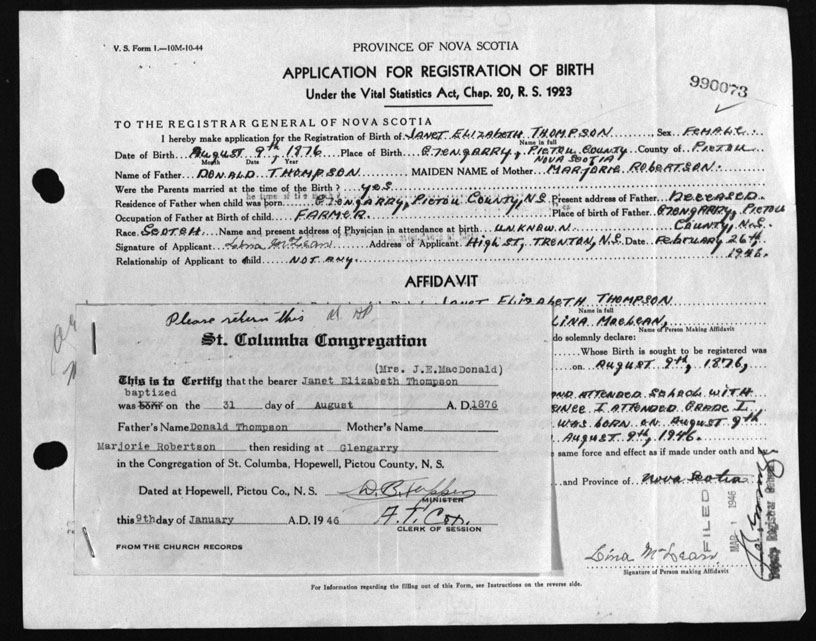 V. S. Form 1.—10M-10-44
PROVINCE OF NOVA SCOTIA
APPLICATION FOR REGISTRATION OF BIRTH
Under the Vital Statistics Act, Chap. 20, R. S. 1923
990073
TO THE REGISTRAR GENERAL OF NOVA SCOTIA
I hereby make application for the Registration of Birth of JANET ELIZABETH THOMPSON, Sex FEMALE.
Name in full
Date of Birth AUGUST 9th, 1876 Place of Birth GLENGARRY, PICTOU COUNTY County of PICTOU
Month Date Year NOVA SCOTIA
Name of Father DONALD THOMPSON MAIDEN NAME of Mother MARJORIE ROBERTSON.
Were the Parents married at the time of the Birth? YES
Residence of Father when child was born GLENGARRY, PICTOU COUNTY, N.S. Present address of Father DECEASED.
Occupation of Father at Birth of child FARMER. Place of birth of Father GLENGARRY, PICTOU
Race SCOTCH Name and present address of Physician in attendance at birth UNKNOWN COUNTY, N.S.
Signature of Applicant Lina McLean Address of Applicant HIGH ST, TRENTON, N.S. Date FEBRUARY 26th
1946.
Relationship of Applicant to child NOT ANY.
AFFIDAVIT
JANET ELIZABETH THOMPSON
Name in full
LINA MACLEAN,
Name of Person Making Affidavit
do solemnly declare:
Whose Birth is sought to be registered was
on AUGUST 9th, 1876,
AND ATTENDED SCHOOL WITH
SINCE I ATTENDED GRADE I
WAS BORN ON AUGUST 9th
AUGUST 9th, 1946.
same force and effect as if made under oath and
and Province of Nova Scotia
FILED
MAR 1 1946
Deputy Registrar General
Lina McLean
Signature of Person making Affidavit
Please return this
St. Columba Congregation
(Mrs. J.E.MacDonald)
This is to Certify that the bearer Janet Elizabeth Thompson
baptized
was born on the 31 day of August A. D. 1876
Father's Name Donald Thompson Mother's Name
Marjorie Robertson then residing at Glengarry
in the Congregation of St. Columba, Hopewell, Pictou County, N. S.
Dated at Hopewell, Pictou Co., N. S.
MINISTER
this 9th day of January A.D. 1946 A. T. Cox.
CLERK OF SESSION
FROM THE CHURCH RECORDS
For Information regarding the filling out of this Form, see Instructions on the reverse side.